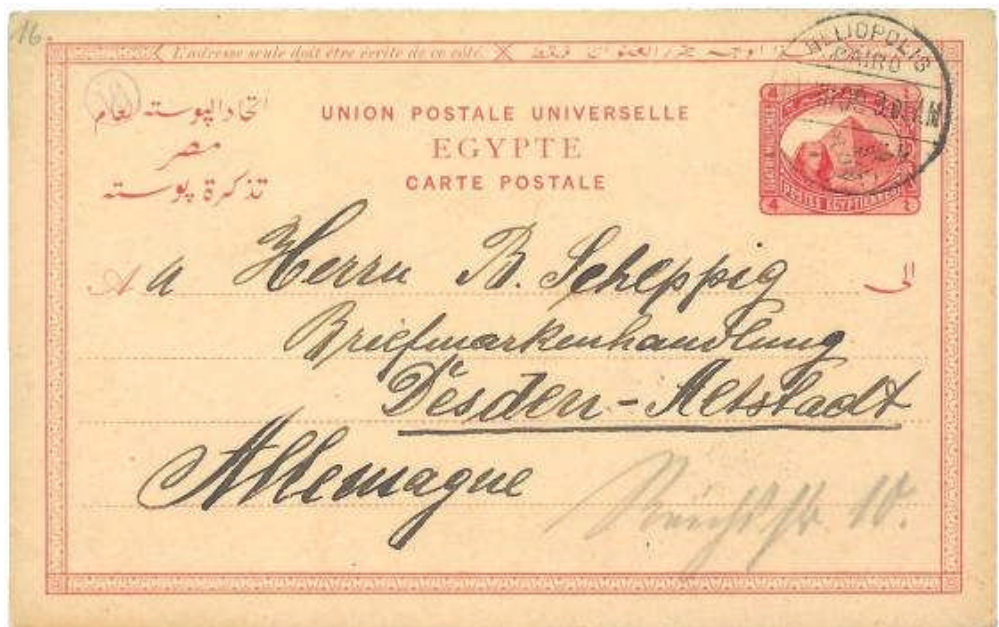 16.
L'adresse seule doit être écrite de ce côté.
HELIOPOLIS
CAIRO
AM
اتحاد البوسته العام
مصر
تذكرة بوسته
UNION POSTALE UNIVERSELLE
EGYPTE
CARTE POSTALE
4
4
POSTES EGYPTIENNES
A a Herrn B. Scheppig
الى
Briefmarkenhandlung
Desden-Altstadt
Allemagne
10.